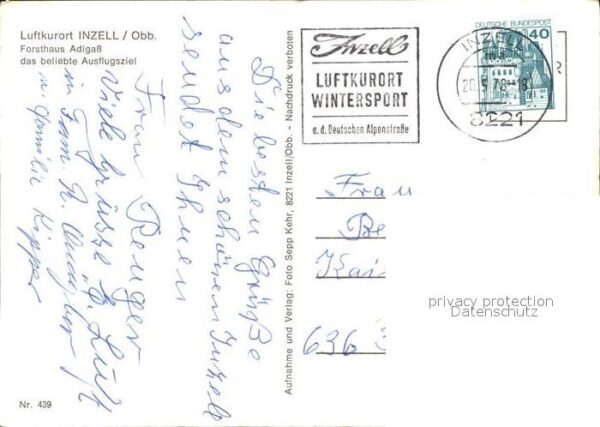 Luftkurort INZELL / Obb.
Forsthaus Adlgaß
das beliebte Ausflugsziel
Die besten Grüße
aus dem schönen Inzell
sendet Ihnen
Frau Renger
Viele Grüße
in Fam.
u. Familie Kipper
Nr. 439
Aufnahme und Verlag: Foto Sepp Kehr, 8221 Inzell/Obb. - Nachdruck verboten
Inzell
LUFTKURORT
WINTERSPORT
a. d. Deutschen Alpenstraße
INZELL
20.5.78-18
8221
DEUTSCHE BUNDESPOST
40
Frau
Be
Kai
636
privacy protection
Datenschutz